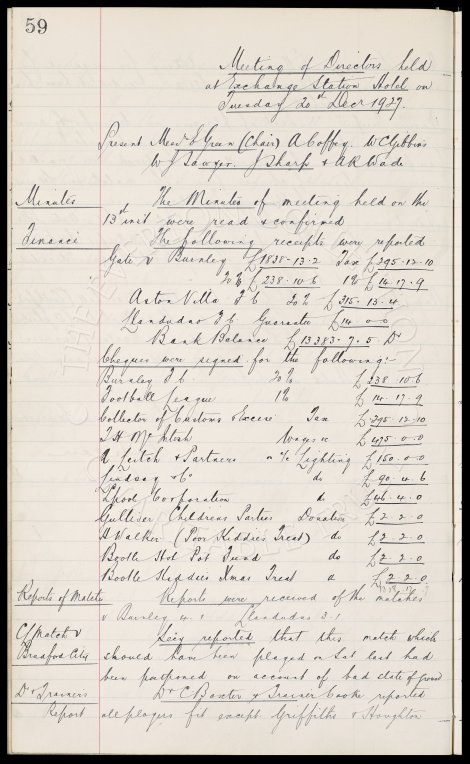 59
Meeting of Directors held
at Exchange Station Hotel on
Tuesday 20th Decr 1927.
Present Messrs E Green (Chair) A Coffey. W C Gibbins
W J Sawyer. J Sharp & A R Wade
Minutes The Minutes of meeting held on the
13th inst were read & confirmed
Finance The following receipts were reported
Gate v Burnley £1838-13-2 Tax £395-12-10
20% £238-10-6 1% £14-17-9
Aston Villa F C 20% £315-13-4
Llandudno F C Guarantee £14-0-0
Bank Balance £13383-7-5 Dr
Cheques were signed for the following:-
Burnley F C 20% £238-10-6
Football League 1% £14-17-9
Collector of Customs & Excise Tax £395-12-10
T H McIntosh Wages &c £475-0-0
A Leitch & Partners o/a/c Lighting £150-0-0
Lindsay & Co do £90-4-6
Lpool Corporation do £46-4-0
Gulliver Childrens Parties Donation £2-2-0
A Walker (Poor Kiddies Treat) do £2-2-0
Bootle Hot Pot Fund do £2-2-0
Bootle Kiddies Xmas Treat d £2-2-0
Reports of Matches Reports were received of the matches
v Burnley 4.1 Llandudno 3-1
C/ Match v Secy reported that this match which
Bradford City should have been played on Sat last had
been postponed on account of bad state of ground
Dr & Trainers Dr C Baxter & Trainer Cooke reported
Report all players fit except Griffiths & Houghton